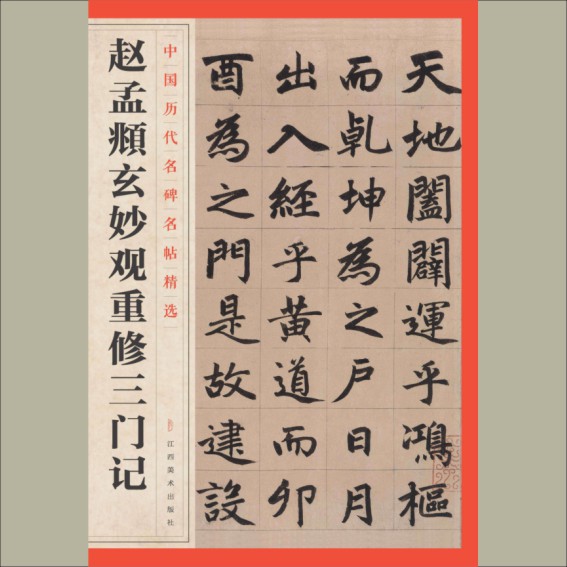 赵孟頫玄妙观重修三门记
中国历代名碑名帖精选
江西美术出版社
天地闔闢運乎鴻樞
而乹坤為之户日月
出入經乎黄道而卯
酉為之門是故建設